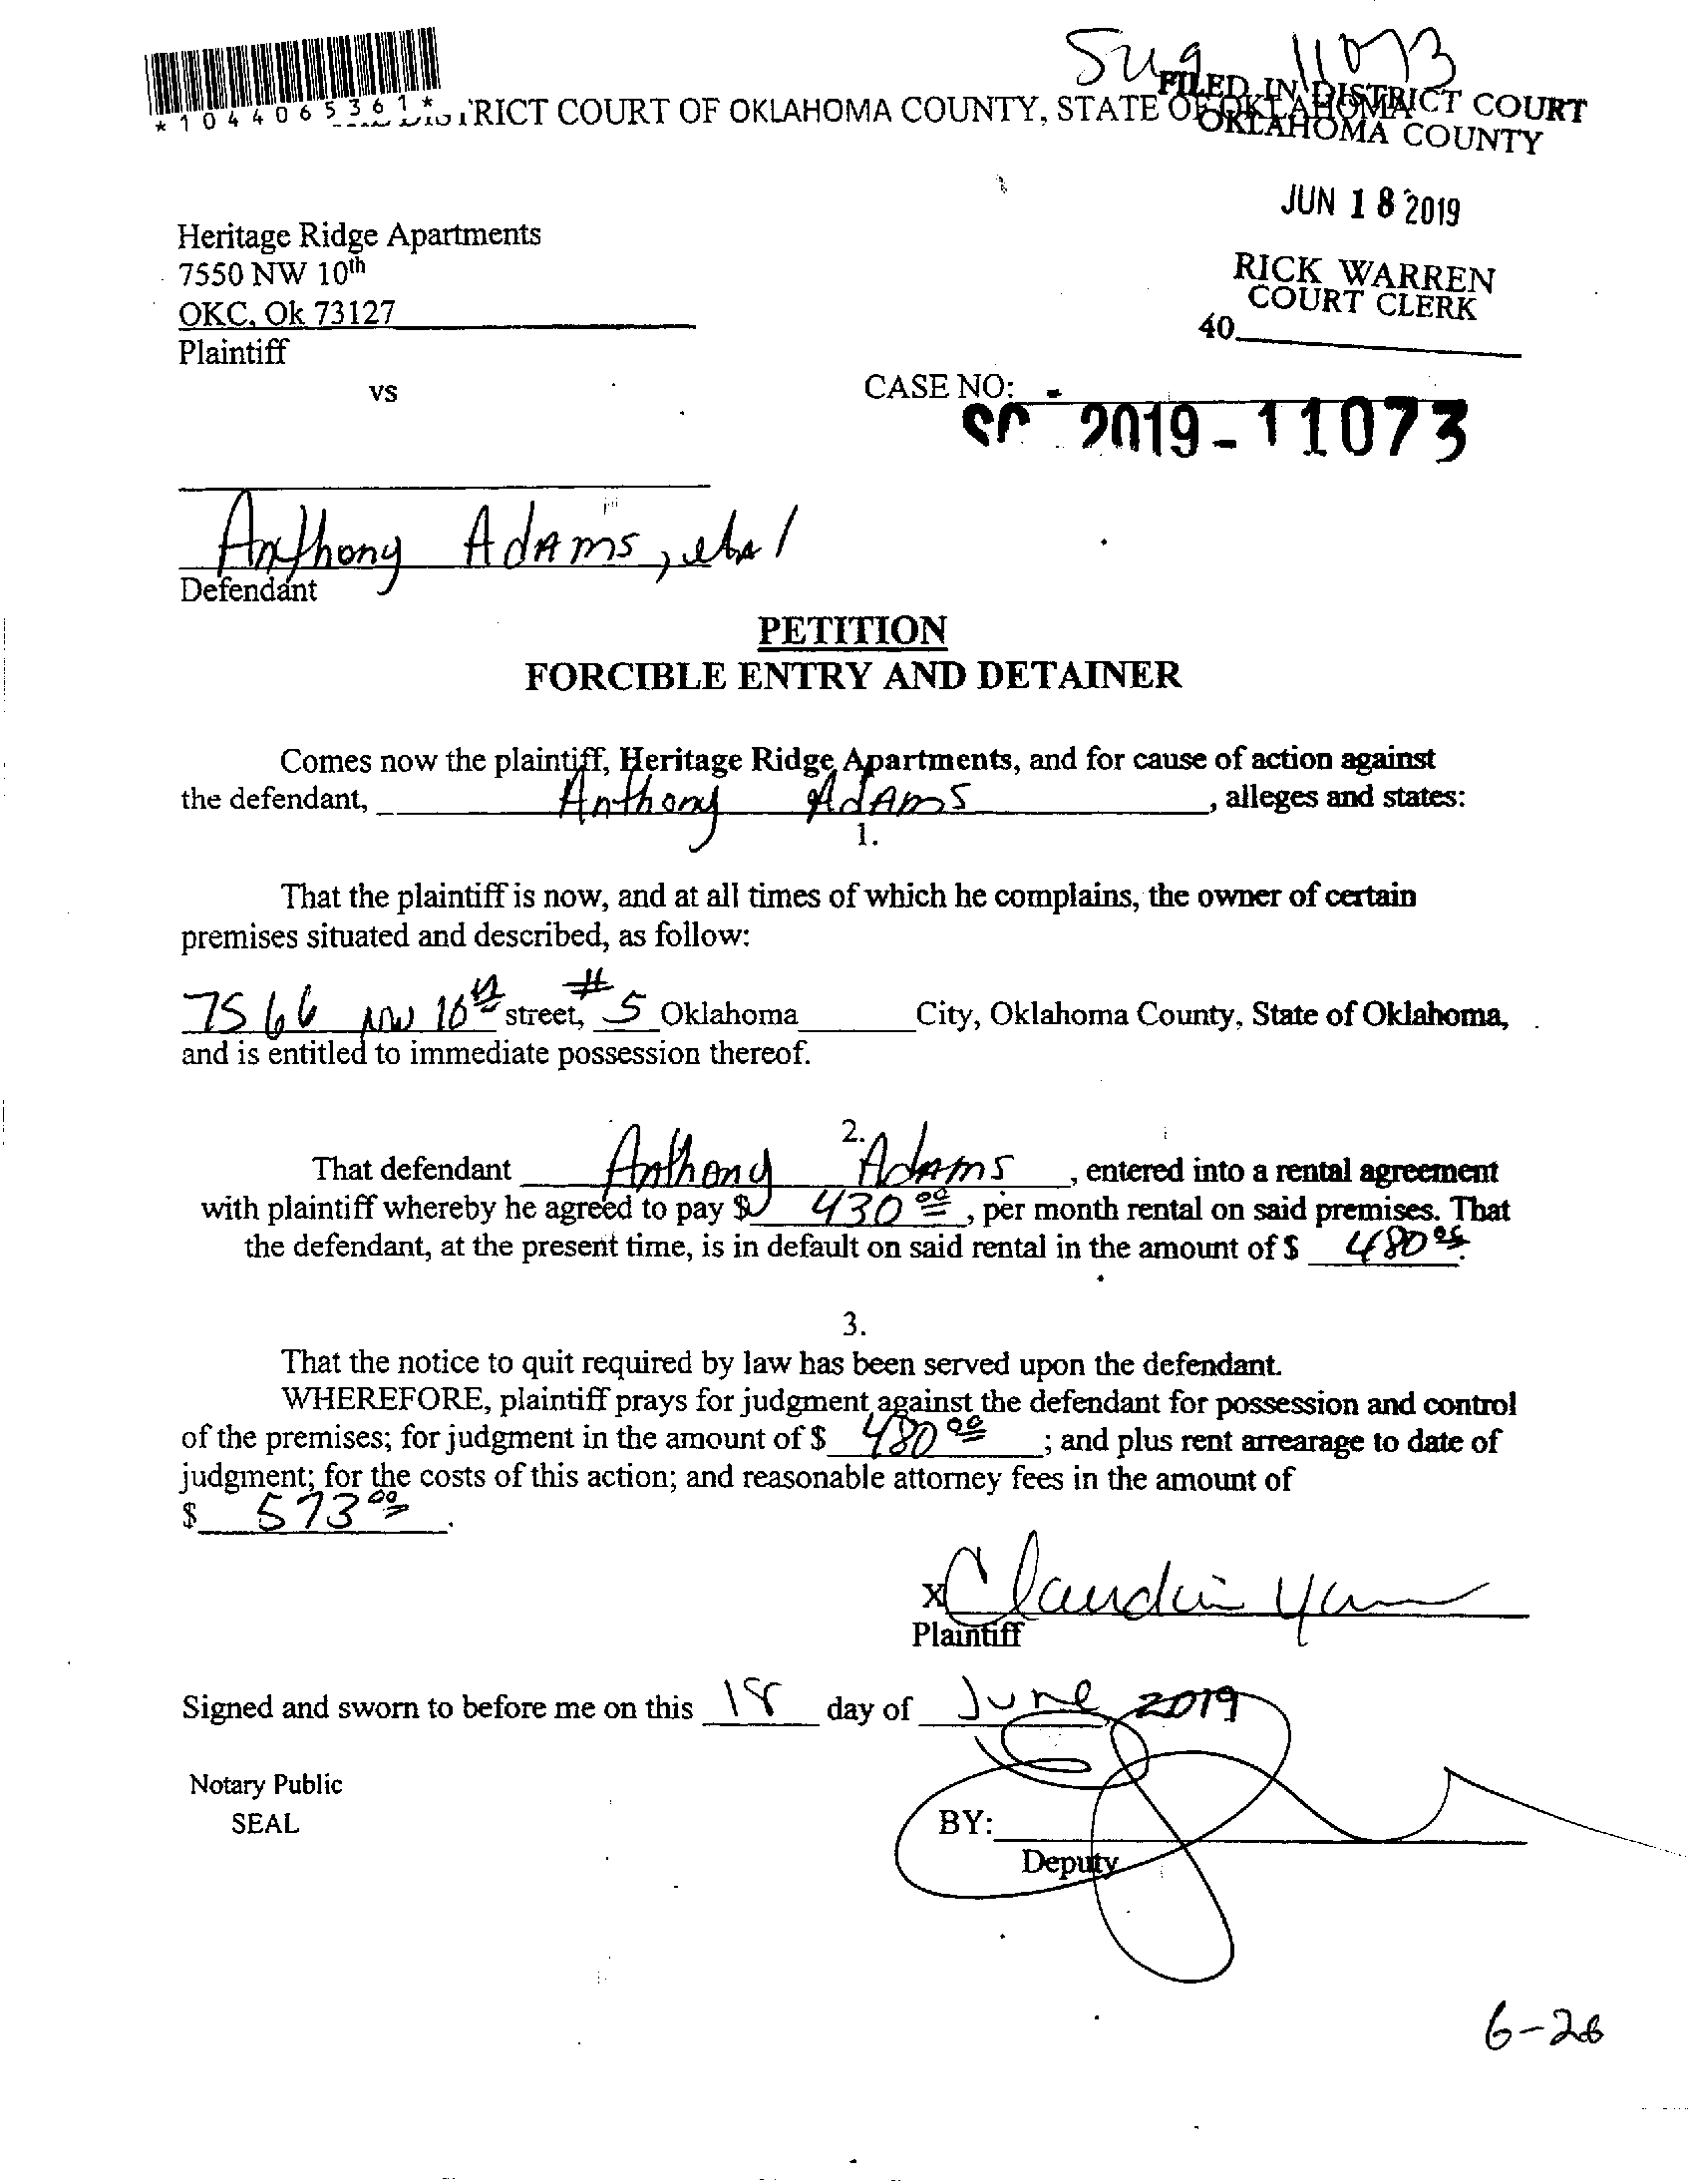 11073
*1044065361* DISTRICT COURT OF OKLAHOMA COUNTY, STATE OF OKLAHOMA
FILED IN DISTRICT COURT
OKLAHOMA COUNTY
JUN 18 2019
RICK WARREN
COURT CLERK
40
Heritage Ridge Apartments
7550 NW 10th
OKC, Ok 73127
Plaintiff
vs
CASE NO:
SC 2019-11073
Anthony Adams, et al
Defendant
PETITION
FORCIBLE ENTRY AND DETAINER
Comes now the plaintiff, Heritage Ridge Apartments, and for cause of action against
the defendant, Anthony Adams, alleges and states:
1.
That the plaintiff is now, and at all times of which he complains, the owner of certain
premises situated and described, as follow:
7566 NW 10th street, #5 Oklahoma City, Oklahoma County, State of Oklahoma,
and is entitled to immediate possession thereof.
2.
That defendant Anthony Adams, entered into a rental agreement
with plaintiff whereby he agreed to pay $ 430 00, per month rental on said premises. That
the defendant, at the present time, is in default on said rental in the amount of $ 480 00.
3.
That the notice to quit required by law has been served upon the defendant.
WHEREFORE, plaintiff prays for judgment against the defendant for possession and control
of the premises; for judgment in the amount of $ 480 00; and plus rent arrearage to date of
judgment; for the costs of this action; and reasonable attorney fees in the amount of
$ 573 00.
X Claudia
Plaintiff
Signed and sworn to before me on this 18 day of June, 2019
Notary Public
SEAL
BY:
Deputy
6-26